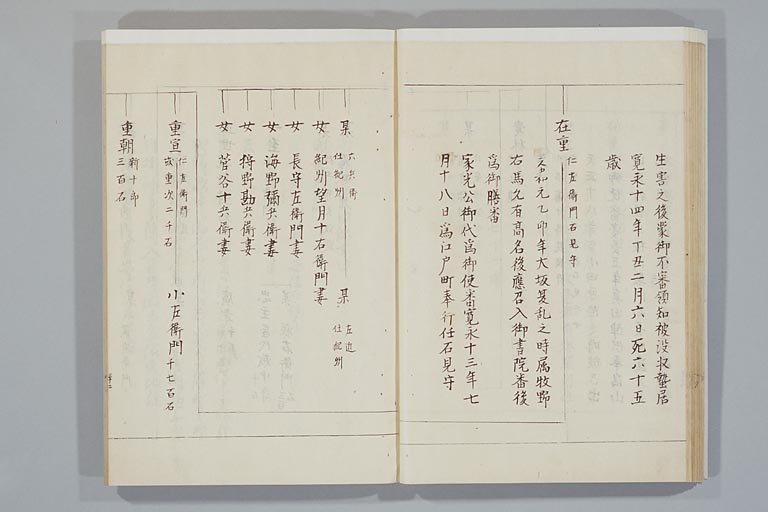 生害之後蒙御不審領知被没収蟄居
寛永十四年丁丑二月六日死六十五
歳
在重
仁左衛門石見守
元和元乙卯年大坂夏乱之時属牧野
右馬允有高名後應召入御書院番後
為御膳番
家光公御代為御使番寛永十三年七
月十八日為江戸町奉行任石見守
某
六兵衛
仕紀州
某
左近
仕紀州
女 紀州望月十右衛門妻
女 長守左衛門妻
女 海野彌兵衛妻
女 揖野勘兵衛妻
女 菅谷十兵衛妻
重宣
仁左衛門
或重次二千石
小左衛門 千七百石
重朝
新十郎
三百石